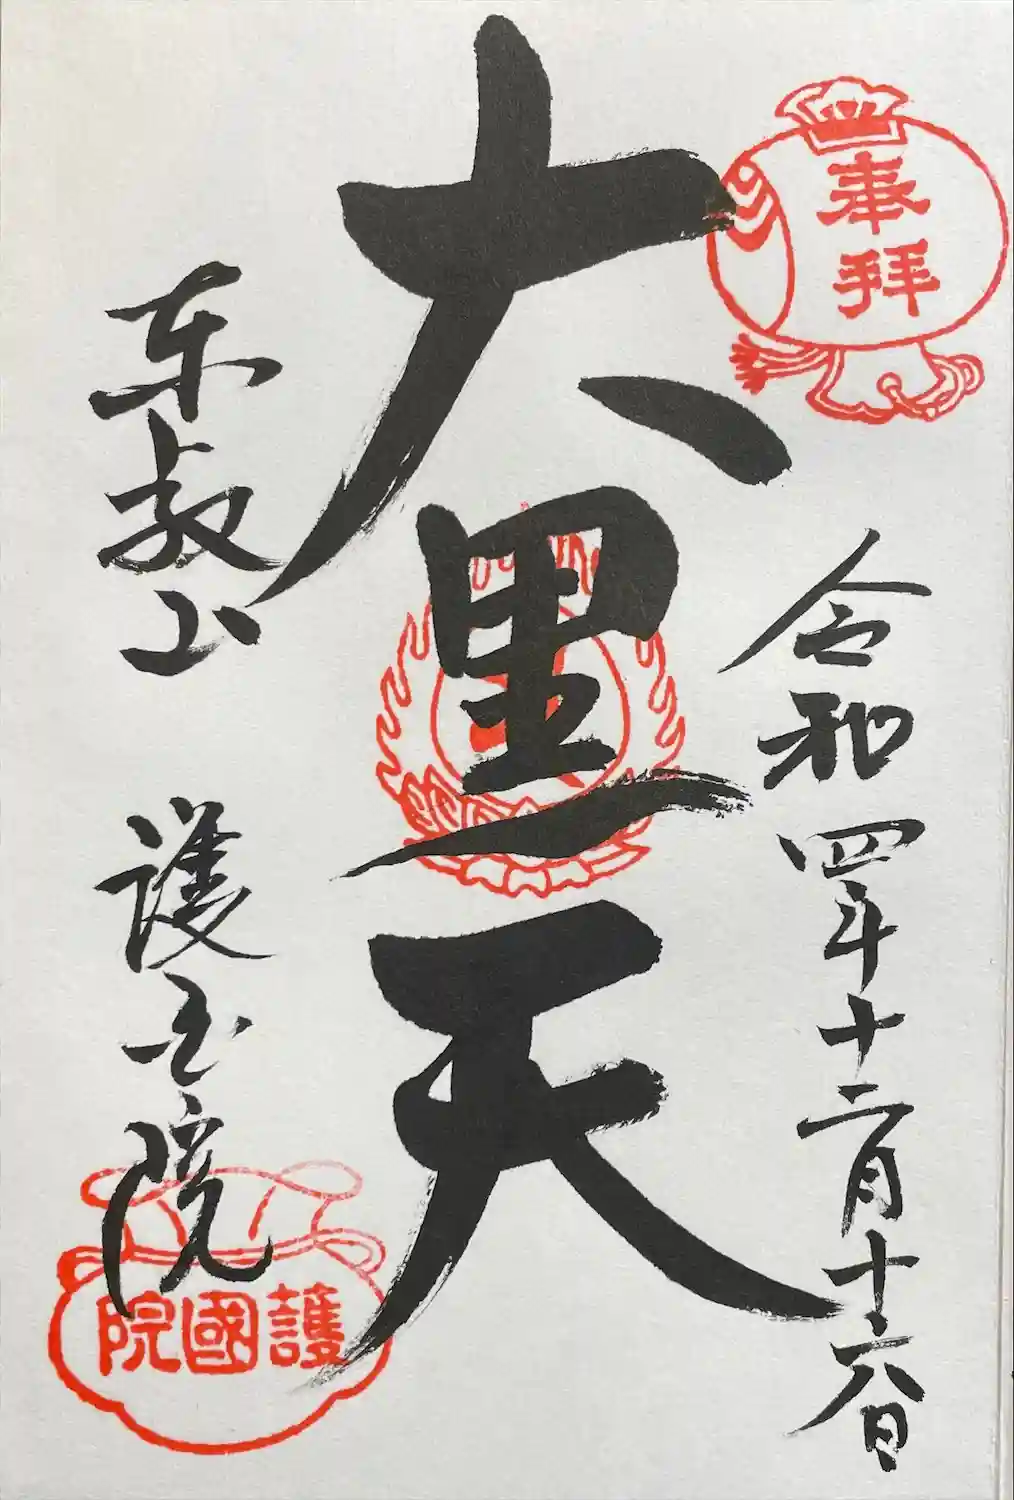 奉拝
令和四年十二月十六日
大黒天
东叡山 護国院
護國院